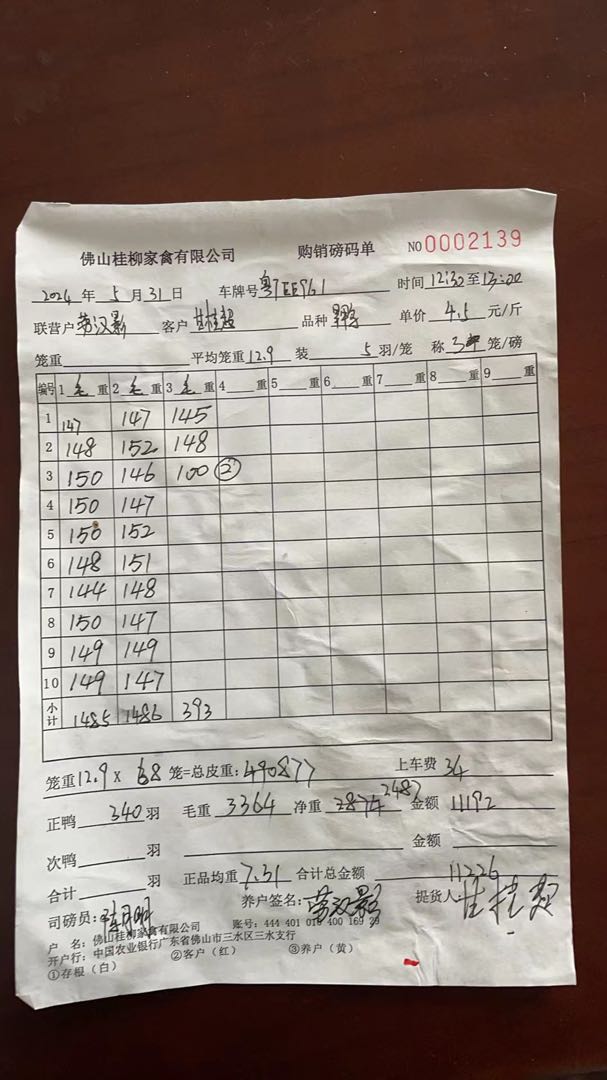 佛山桂柳家禽有限公司 购销磅码单 NO 0002139
2024 年 5 月 31 日 车牌号 粤7EE961 时间 12:30 至 13:00
联营户 劳汉影 客户 甘桂超 品种 单价 4.5 元/斤
笼重 平均笼重 12.9 装 5 羽/笼 称 3 笼/磅
编号 1 毛 重 2 毛 重 3 毛 重 4 重 5 重 6 重 7 重 8 重 9 重
1 147 147 145
2 148 152 148
3 150 146 100 ②
4 150 147
5 150 152
6 148 151
7 144 148
8 150 147
9 149 149
10 149 147
小计 1485 1486 393
笼重 12.9 X 68 笼=总皮重: 上车费 34
正鸭 340 羽 毛重 3364 净重 2487 金额 11192
次鸭 羽 金额
合计 羽 正品均重 7.31 合计总金额 11226
司磅员: 养户签名: 劳汉影 提货人 甘桂超
户 名: 佛山桂柳家禽有限公司 账号: 444 401 010 400 169 29
开户行: 中国农业银行广东省佛山市三水区三水支行
①存根（白） ②客户（红） ③养户（黄）